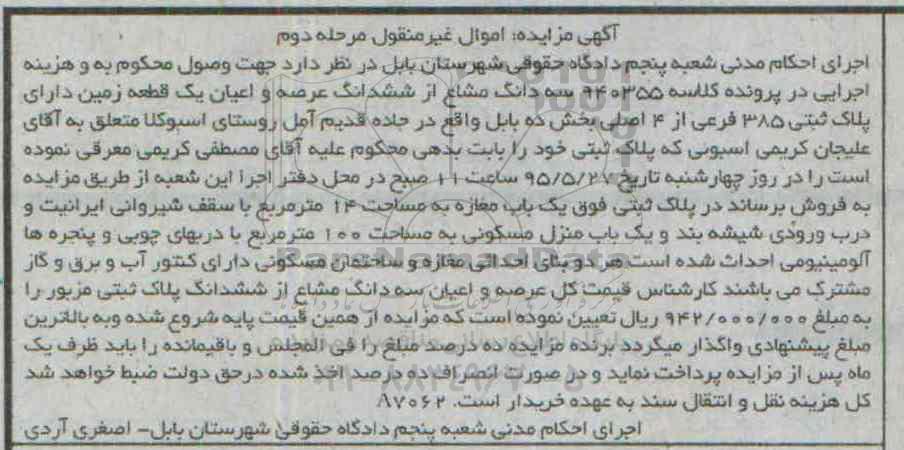 آگهی مزایده: اموال غیر منقول مرحله دوم
اجرای احکام مدنی شعبه پنجم دادگاه حقوقی شهرستان بابل در نظر دارد جهت وصول محکوم به و هزینه
اجرایی در پرونده کلاسه ۹۴۰۳۵۵ سه دانگ مشاع از ششدانگ عرصه و اعیان یک قطعه زمین دارای
پلاک ثبتی ۳۸۵ فرعی از ۴ اصلی بخش ده بابل واقع در جاده قدیم آمل روستای اسبوکلا متعلق به آقای
علیجان کریمی اسبونی که پلاک ثبتی خود را بابت بدهی محکوم علیه آقای مصطفی کریمی معرفی نموده
است را در روز چهارشنبه تاریخ ۹۵/۵/۲۷ ساعت ۱۱ صبح در محل دفتر اجرا این شعبه از طریق مزایده
به فروش برساند در پلاک ثبتی فوق یک باب مغازه به مساحت ۱۴ مترمربع با سقف شیروانی ایرانیت و
درب ورودی شیشه بند و یک باب منزل مسکونی به مساحت ۱۰۰ مترمربع با دربهای چوبی و پنجره ها
آلومینیومی احداث شده است هر دو بنای احداثی مغازه و ساختمان مسکونی دارای کنتور آب و برق و گاز
مشترک می باشند کارشناس قیمت کل عرصه و اعیان سه دانگ مشاع از ششدانگ پلاک ثبتی مزبور را
به مبلغ ۹۴۲/۰۰۰/۰۰۰ ریال تعیین نموده است که مزایده از همین قیمت پایه شروع شده وبه بالاترین
مبلغ پیشنهادی واگذار میگردد برنده مزایده ده درصد مبلغ را فی المجلس و باقیمانده را باید ظرف یک
ماه پس از مزایده پرداخت نماید و در صورت انصراف ده درصد اخذ شده درحق دولت ضبط خواهد شد
کل هزینه نقل و انتقال سند به عهده خریدار است. ۸۷۰۶۲
اجرای احکام مدنی شعبه پنجم دادگاه حقوقی شهرستان بابل- اصغری آردی
ParsNamadData